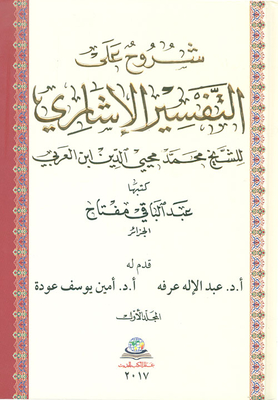 شروح على
التفسير الإشاري
للشيخ محمد محيي الدين ابن العربي
كتبها
عبد الباقي مفتاح
الجزائر
قدم له
أ.د. عبد الإله عرفه أ.د. أمين يوسف عودة
المجلد الأول
٢٠١٧